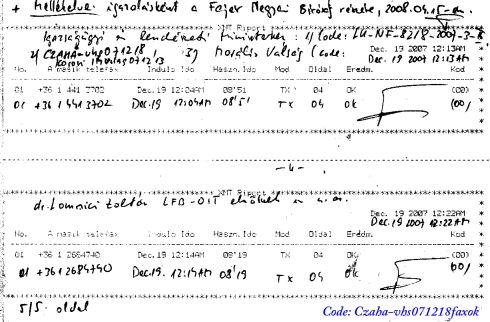 + Mellékelve: igazolásként a Fejér Megyei Bíróság részére, 2008.04.15-én.
XMT Report
Igazságügyi és Rendészeti Miniszter : 1/ Code:
2/ CZAHA-vhs071218, 3/ Morális Válság (code:
Dec. 19 2007 12:13AM
Dec. 19 2007 12:13AM
No. A masik telefax Indulo Ido Haszn.Ido Mod Oldal Eredm. Kod
01 +36 1 441 3702 Dec.19 12:04AM 08'51 TX 04 OK (00)
01 +36 1 441 3702 Dec.19 12:04AM 08'51 Tx 04 OK (00)
-4-
XMT Report
dr. Lomnici Zoltán LFB-OIT elnöknek
Dec. 19 2007 12:22AM
Dec. 19 2007 12:22AM
No. A masik telefax Indulo Ido Haszn.Ido Mod Oldal Eredm. Kod
01 +36 1 2684740 Dec.19 12:14AM 08'19 TX 04 OK (00)
01 +36 1 2684740 Dec.19. 12:14AM 08'19 Tx 04 OK 00)
5/5. oldal
Code: Czaha-vhs071218faxok